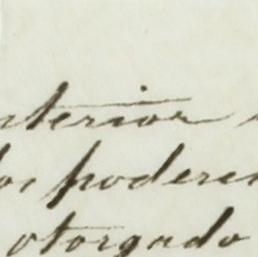 nterior
los poderes
otorgado